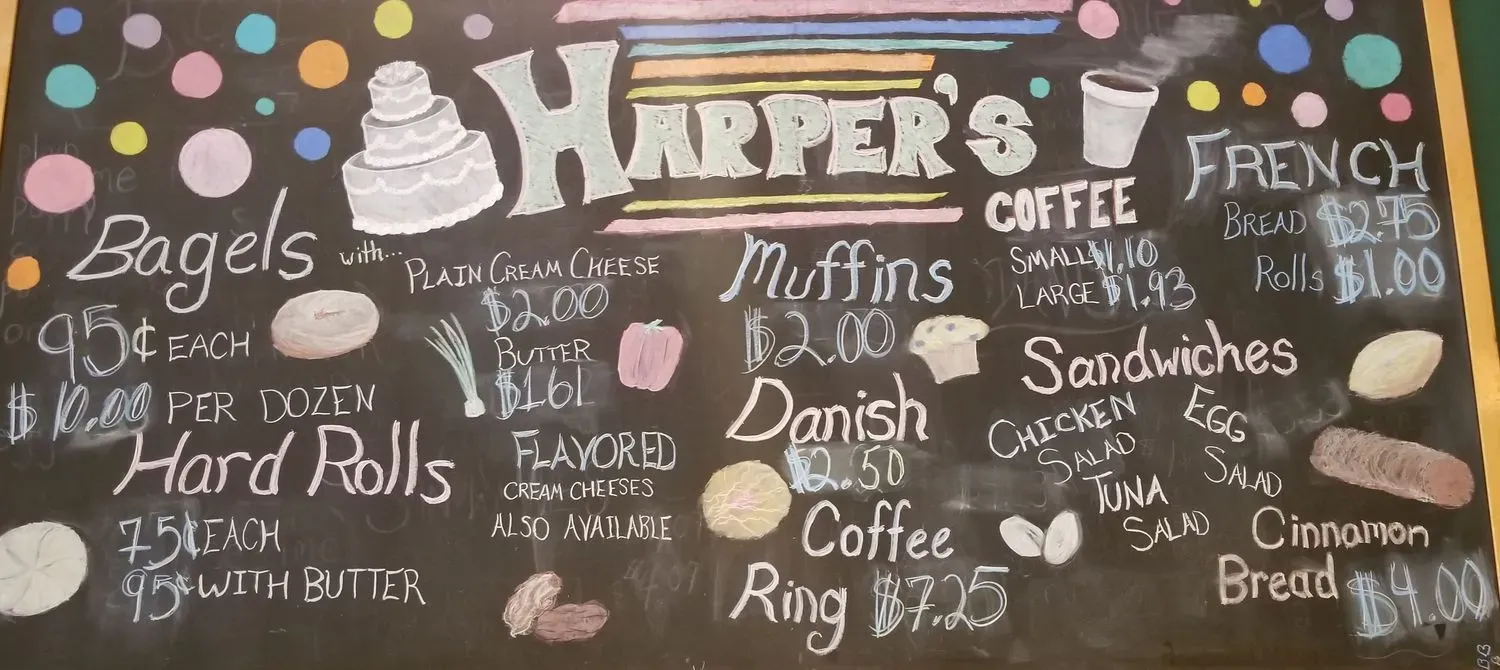 HARPER'S
Bagels with...
95¢ EACH
$10.00 PER DOZEN
Hard Rolls
75¢ EACH
95¢ WITH BUTTER
PLAIN CREAM CHEESE
$2.00
BUTTER
$1.61
FLAVORED
CREAM CHEESES
ALSO AVAILABLE
Muffins
$2.00
Danish
$2.50
Coffee
Ring $7.25
COFFEE
SMALL $1.10
LARGE $1.93
Sandwiches
CHICKEN
SALAD
EGG
SALAD
TUNA
SALAD
FRENCH
BREAD $2.75
Rolls $1.00
Cinnamon
Bread $4.00
BB